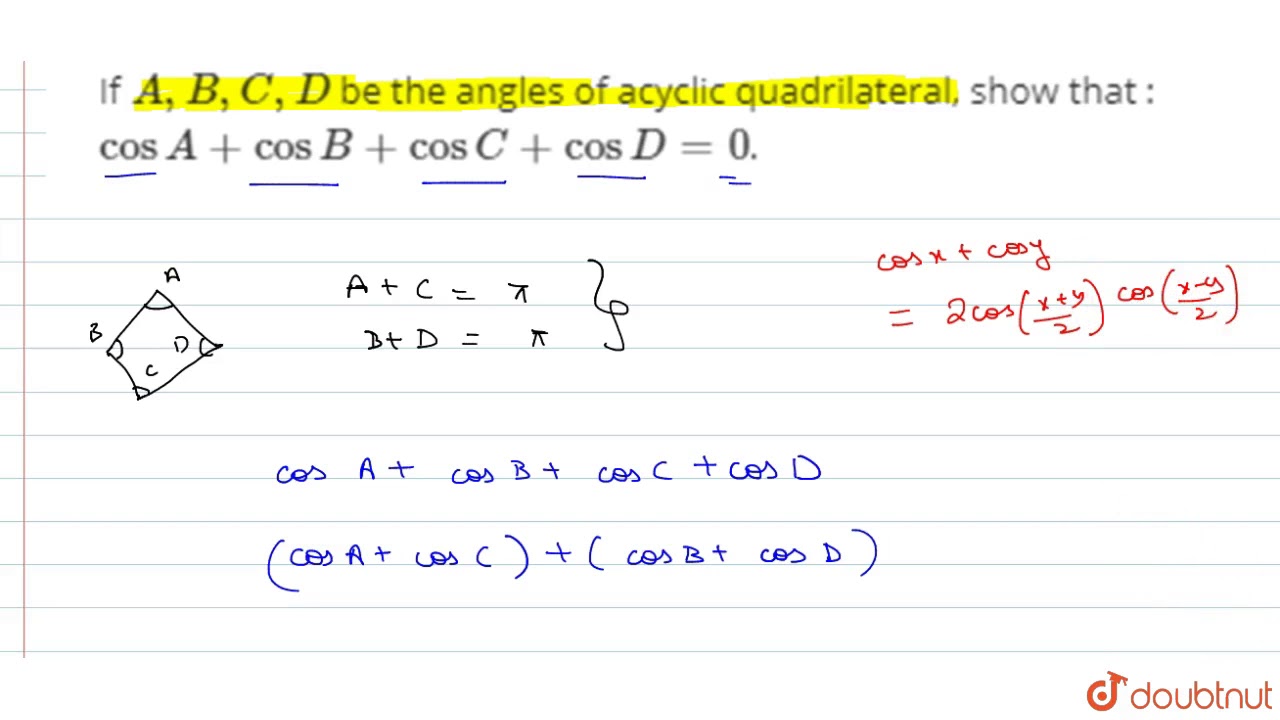 If A, B, C, D be the angles of acyclic quadrilateral, show that :
cos A + cos B + cos C + cos D = 0.
A
B
D
C
A + C = π
B + D = π
cos x + cos y
= 2 cos (x+y/2) cos (x-y/2)
cos A + cos B + cos C + cos D
(cos A + cos C) + (cos B + cos D)
doubtnut